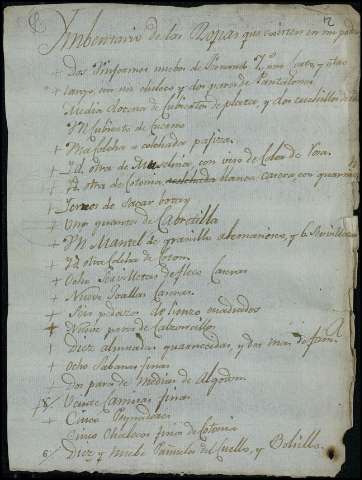 Imbentario de las Ropas que existen en mi poder
+ Dos Uniformes nuebos de Parando y uno
+ largo con sus chalecos y dos pares de Pantalones
Media docena de Cubiertos de plata, y dos cuchillos de
Un Cubierto de Cuerno
+ Una Colcha o colchado pajiza.
+ Yd otra de Muselina, con viso de Color de Rosa.
+ Yd otra de Cotonia, blanca casera con guarnic
+ de sacar botas
+ Una guantes de Cabretilla
+ Un Mantel de granilla alemanisco, y 6 Servilletas
+ Yd otra Colcha de Coton.
+ Ocho Servilletas de flecos Caseras
+ Nueve Toallas Caseras.
+ Seis pedazos de lienzo cuadrados
+ Nueve pares de Calzoncillos
+ Diez almoadas guarnecidas, y dos mas de fam.ª
+ Ocho Sabanas finas
+ Dos pares de Medias de Algodon
+ Veinte Camisas finas
+ Cinco Peynadores
Cinco Chalecos finos de Cotonia
6 Diez y nuebe Pañuelos del Cuello, y Bolsillo